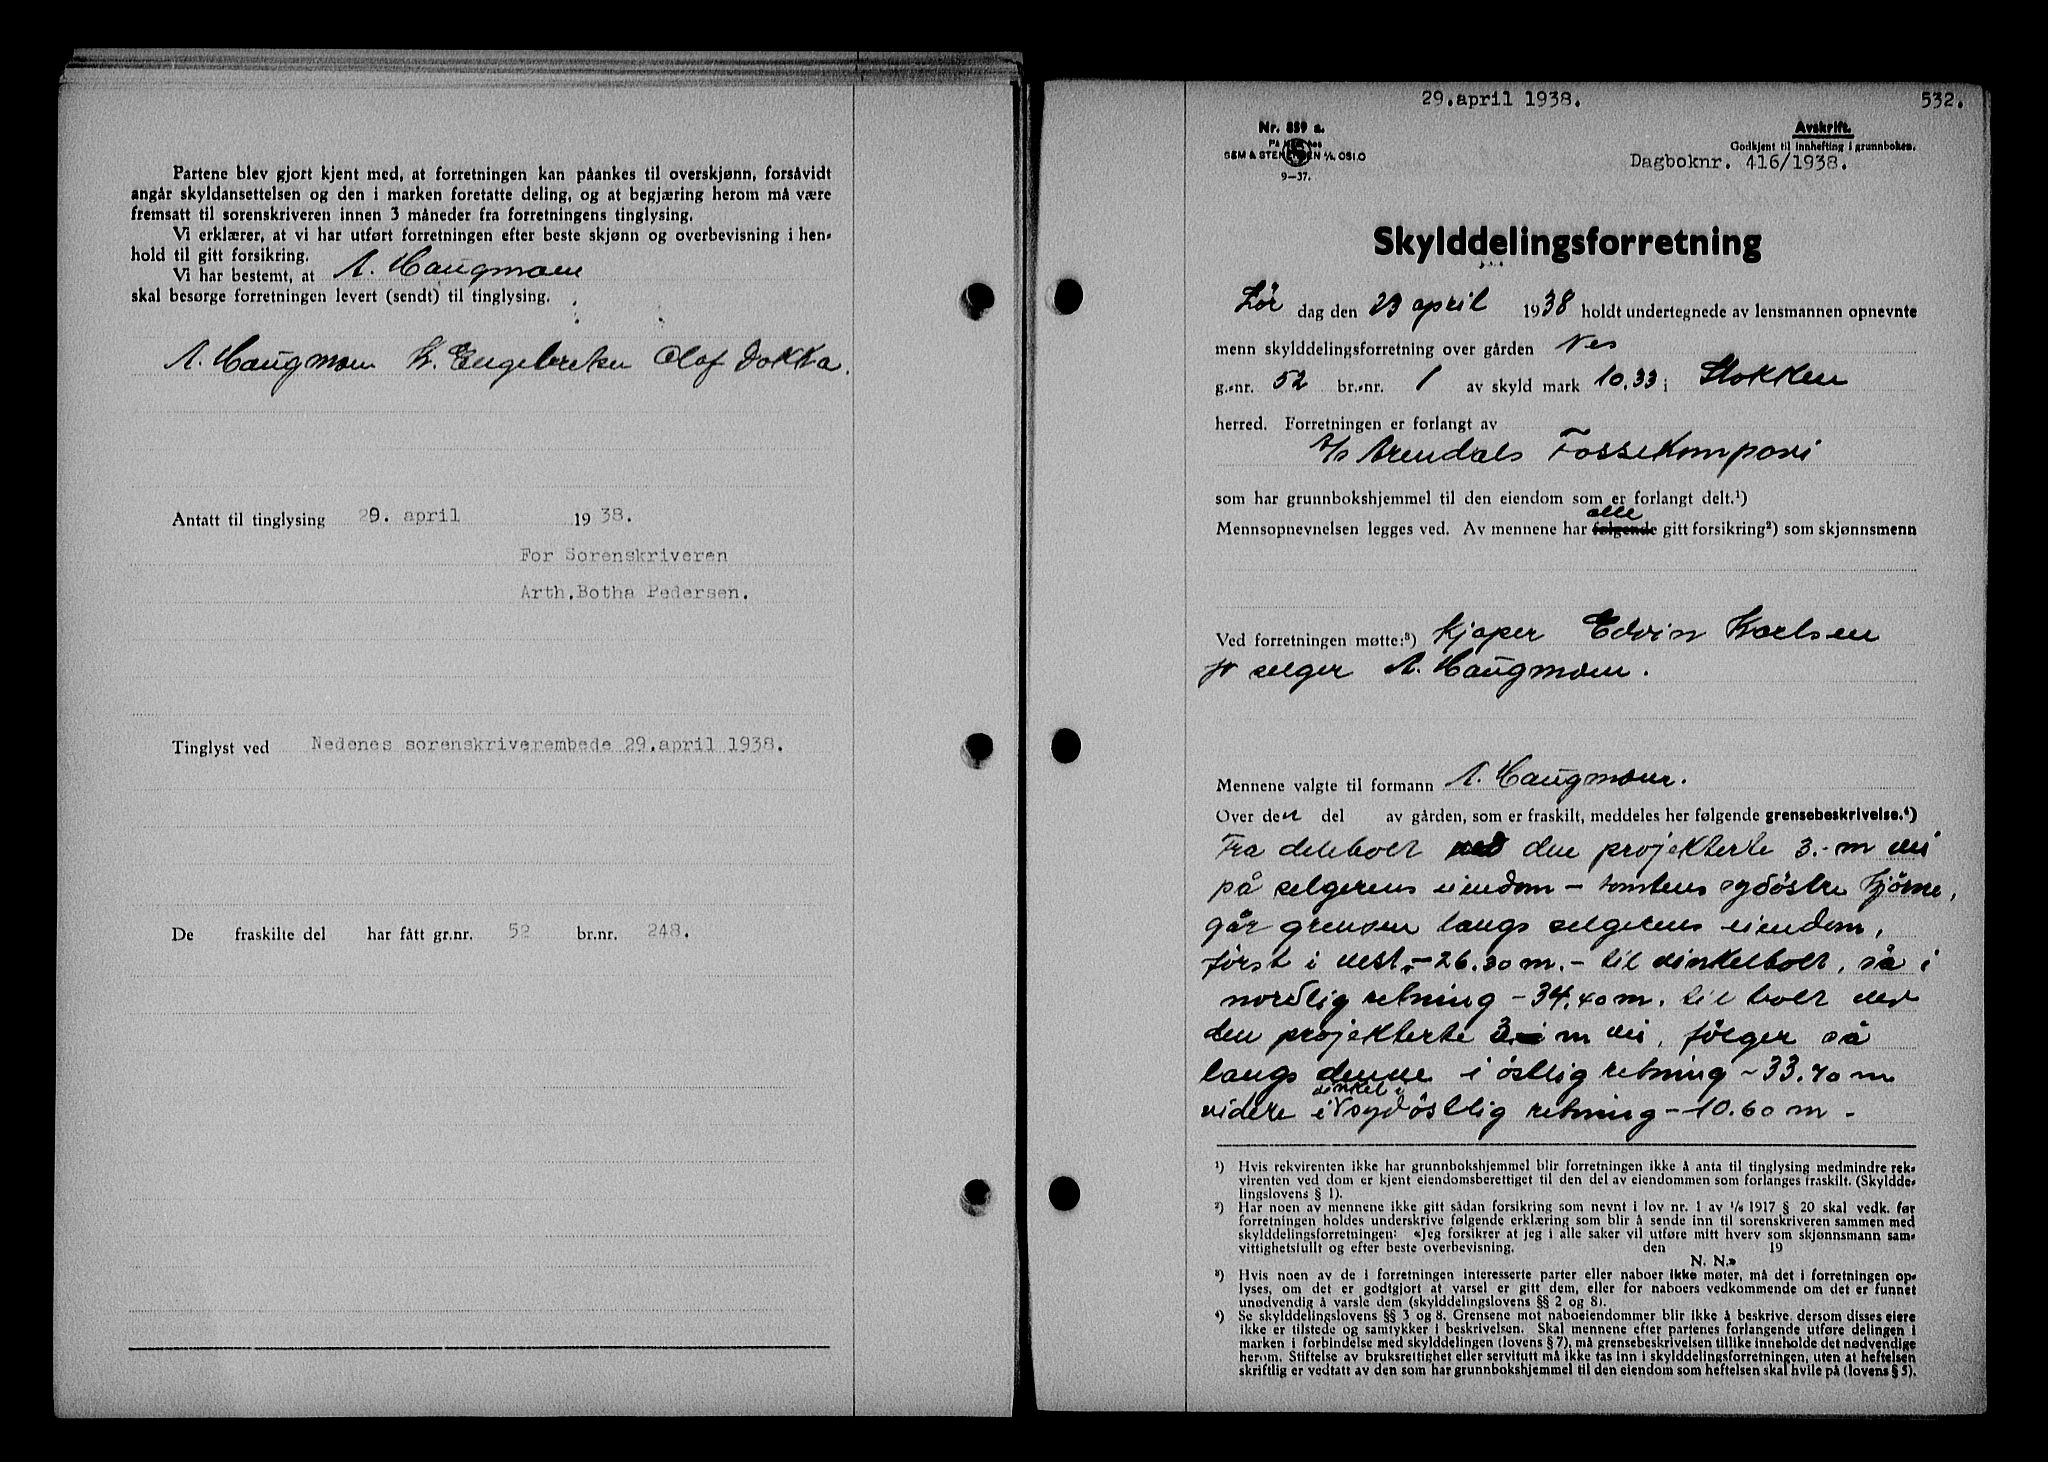 Partene blev gjort kjent med, at forretningen kan påankes til overskjønn, forsåvidt
angår skyldansettelsen og den i marken foretatte deling, og at begjæring herom må være
fremsatt til sorenskriveren innen 3 måneder fra forretningens tinglysing.
Vi erklærer, at vi har utført forretningen efter beste skjønn og overbevisning i hen-
hold til gitt forsikring.
Vi har bestemt, at A. Haugmoen
skal besørge forretningen levert (sendt) til tinglysing.
A. Haugmoen K. Engebretsen Olaf Dokka.
Antatt til tinglysing 29. april 1938.
For Sorenskriveren
Arth. Botha Pedersen.
Tinglyst ved Nedenes sorenskriverembede 29.april 1938.
De fraskilte del har fått gr.nr. 52 br.nr. 248.
29.april 1938. 532.
Nr. 859 a.
På lager hos
SEM & STENERSEN A/S, OSLO
9-37.
Avskrift.
Godkjent til innhefting i grunnboken.
Dagboknr. 416/1938.
Skylddelingsforretning
Lør dag den 23 april 1938 holdt undertegnede av lensmannen opnevnte
menn skylddelingsforretning over gården Nes
g.-nr. 52 br.-nr. 1 av skyld mark 10.33 i Stokken
herred. Forretningen er forlangt av
A/s Arendals Fossekompani
som har grunnbokshjemmel til den eiendom som er forlangt delt.¹)
alle
Mennsopnevnelsen legges ved. Av mennene har følgende gitt forsikring²) som skjønnsmenn
Ved forretningen møtte:³) Kjøper Edvin Karlsen
for selger A. Haugmoen.
Mennene valgte til formann A. Haugmoen.
Over den del av gården, som er fraskilt, meddeles her følgende grensebeskrivelse.⁴)
Fra delebolt ved den projekterte 3.-m vei
på selgerens eiendom - tomtens sydøstre hjørne,
går grensen langs selgerens eiendom,
først i vest, - 26.30 m. - til vinkelbolt, så i
nordlig retning - 34.40 m. til bolt ved
den projekterte 3 m vei, følger så
langs denne i østlig retning - 33.40 m
vinkel i
videre i sydøstlig retning - 10.60 m -
¹) Hvis rekvirenten ikke har grunnbokshjemmel blir forretningen ikke å anta til tinglysing medmindre rek-
virenten ved dom er kjent eiendomsberettiget til den del av eiendommen som forlanges fraskilt. (Skyldde-
lingslovens § 1).
²) Har noen av mennene ikke gitt sådan forsikring som nevnt i lov nr. 1 av 1/6 1917 § 20 skal vedk. før
forretningen holdes underskrive følgende erklæring som blir å sende inn til sorenskriveren sammen med
skylddelingsforretningen: «Jeg forsikrer at jeg i alle saker vil utføre mitt hverv som skjønnsmann sam-
vittighetsfullt og efter beste overbevisning. den 19
N. N.»
³) Hvis noen av de i forretningen interesserte parter eller naboer ikke møter, må det i forretningen op-
lyses, om det er godtgjort at varsel er gitt dem, eller for naboers vedkommende om det er funnet
unødvendig å varsle dem (skylddelingslovens §§ 2 og 8).
⁴) Se skylddelingslovens §§ 3 og 8. Grensene mot naboeiendommer blir ikke å beskrive, dersom disses eiere
ikke er tilstede og samtykker i beskrivelsen. Skal mennene efter partenes forlangende utføre delingen i
marken i forbindelse med skylddelingen (lovens § 7), må grensebeskrivelsen tillike inneholde det nødvendige
herom. Stiftelse av bruksrettighet eller servitutt må ikke tas inn i skylddelingsforretningen, uten at heftelsen
skriftlig er vedtatt av den som har grunnbokshjemmel til den eiendom som heftelsen skal hvile på (lovens § 5).